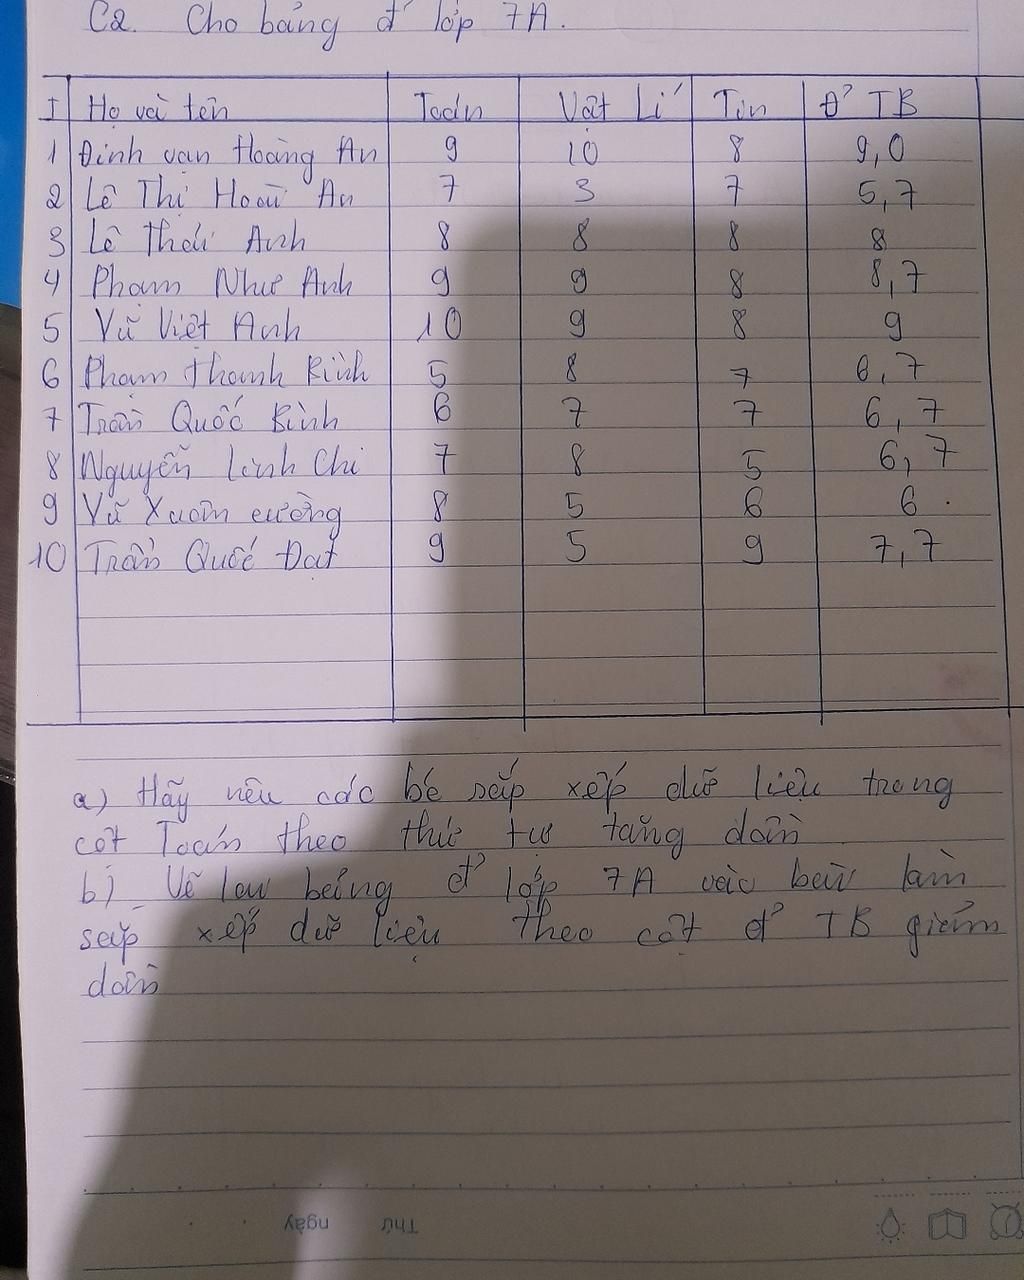 C2. Cho bảng đ' lớp 7A.
I Họ và tên Toán Vật Lí Tin Đ' TB
1 Đinh vạn Hoàng An 9 10 8 9,0
2 Lê Thị Hoài An 7 3 7 5,7
3 Lê Thái Anh 8 8 8 8
4 Phạm Như Anh 9 9 8 8,7
5 Vũ Việt Anh 10 9 8 9
6 Phạm Thanh Bình 5 8 7 6,7
7 Trần Quốc Bình 6 7 7 6,7
8 Nguyễn Linh Chi 7 8 5 6,7
9 Vũ Xuân cường 8 5 6 6.
10 Trần Quốc Đạt 9 5 9 7,7
a) Hãy nêu các bc sắp xếp dữ liệu trong
cột Toán theo thứ tự tăng dần
b) Vẽ lại bảng đ' lớp 7A vào bài làm
sắp xếp dữ liệu theo cột đ' TB giảm
dần
Thứ ngày